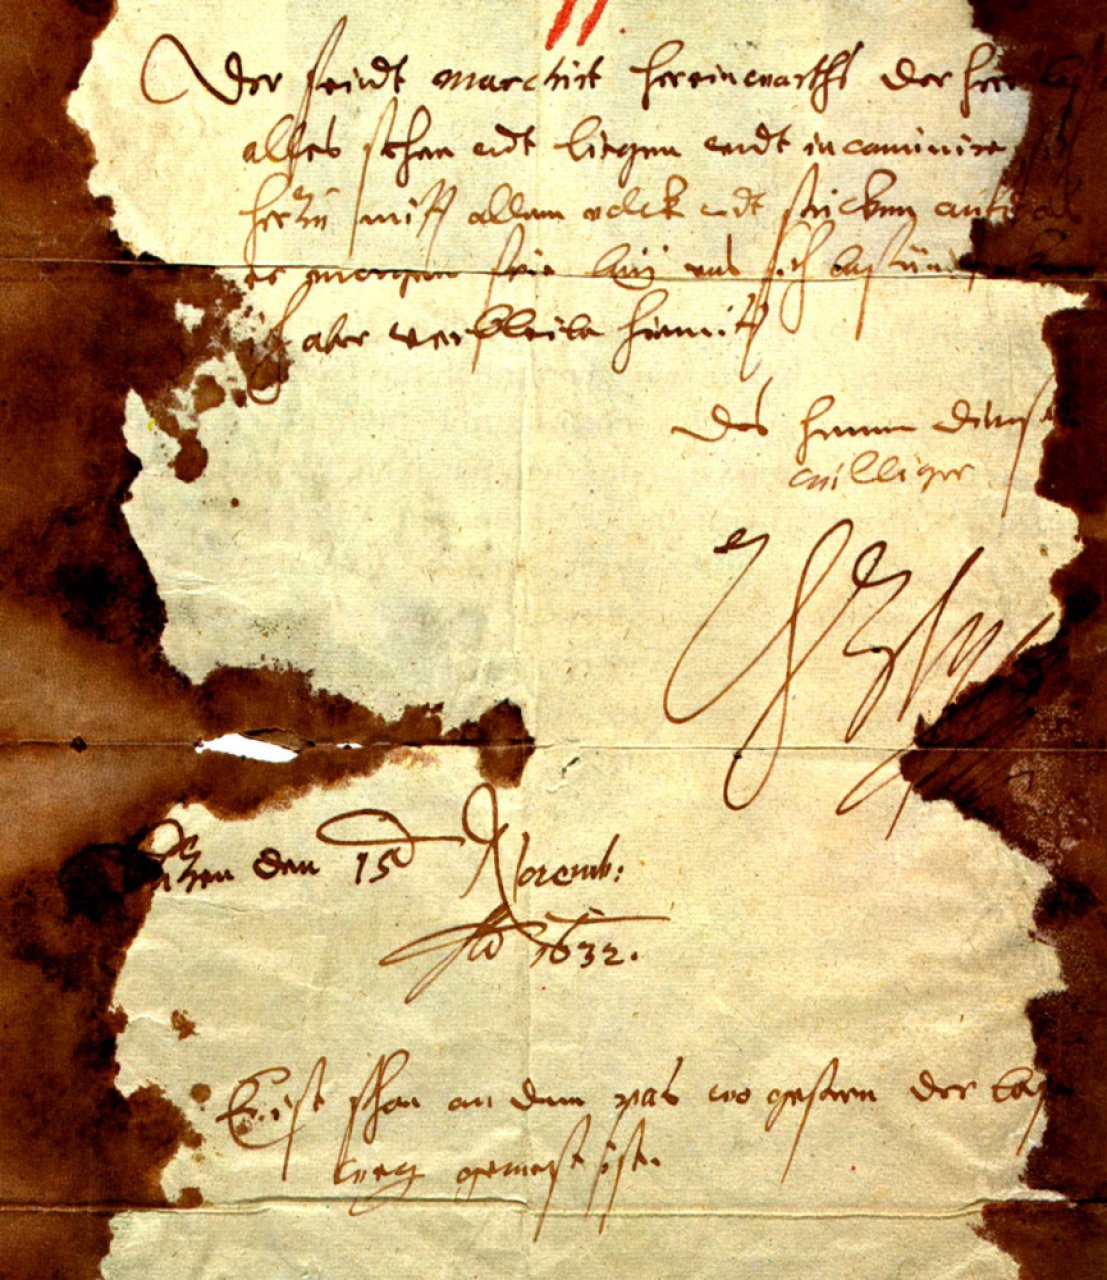 Der feindt marchirt hereinwarths der herr
alles stehen undt liegen undt incaminire
herzu mitt allem volck undt stücken auf das
er morgen frue bey uns sich befünden
aber verbleibe hiemitt
Des herren dienst
williger
den 15 Novemb:
Ao 1632.
Er ist schon an dem pas wo gestern der bose
weg gewest ist.